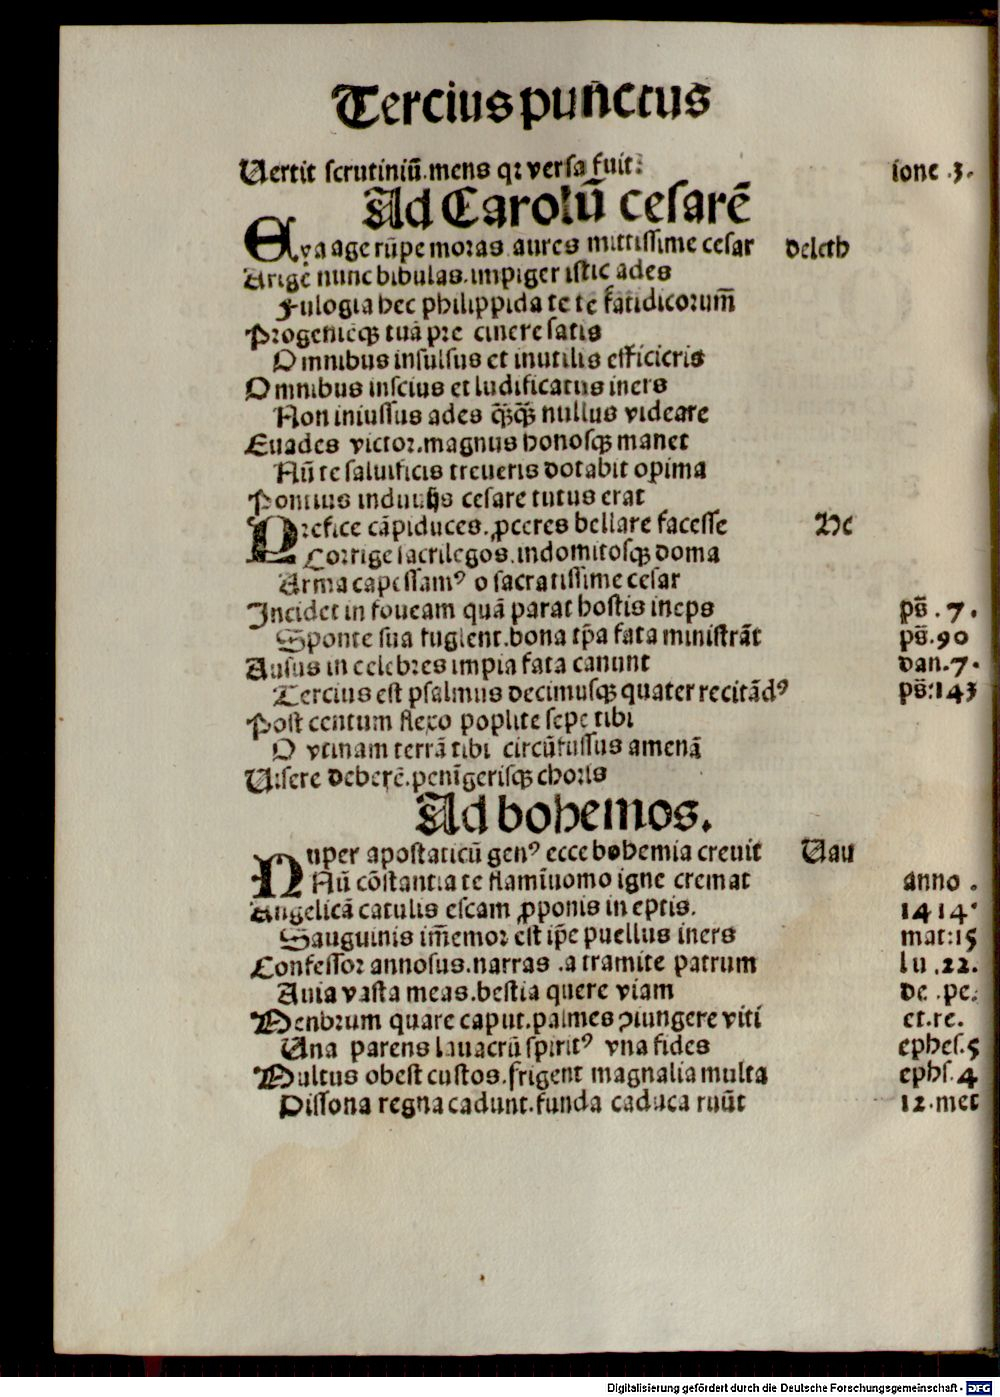 Tercius punctus
Uertit scrutiniū.mens qꝛ versa fuit: ione .3.
Ad Carolū cesarē
Eya age rūpe moras aures mitissime cesar deleth
Arige nunc bibulas.impiger istic ades
Fulogia hec philippida te te fatidicorum̄
Progenieqꝫ tuā pre cinere satis
Omnibus insulsus et inutilis efficieris
Omnibus inscius et ludificatus iners
Non iniussus ades q̄ꝫq̄ꝫ nullus videare
Euades victor.magnus honosqꝫ manet
Nū te saluificis treueris dotabit opima
Pontius induuijs cesare tutus erat
Prefice cāpiduces.ꝓceres bellare facesse He
Corrige sacrilegos.indomitosqꝫ doma
Arma capessamꝰ o sacratissime cesar
Incidet in foueam quā parat hostis ineps ps̄ . 7 .
Sponte sua fugient.bona tp̄a fata ministrāt ps̄.90
Ausus in celebres impia fata canunt dan.7.
Tercius est psalmus decimusqꝫ quater recitādꝰ ps̄:143
Post centum flexo poplite sepe tibi
O vtinam terrā tibi circūfussus amenā
Uisere deberē.penīgerisqꝫ choris
Ad bohemos.
Nuper apostaticū genꝰ ecce bohemia creuit Uau
Nū cōstantia te flamīuomo igne cremat anno .
Angelicā catulis escam ꝓponis in eptis. 1414·
Sanguinis im̄emor est ip̄e puellus iners mat:15
Confessor annosus.narras .a tramite patrum lu .22.
Auia vasta meas.bestia quere viam de .pe.
Menbrum quare caput.palmes ɔiungere viti et.re.
Una parens lauacrū spiritꝰ vna fides ephes.5
Multus obest custos.frigent magnalia multa ephs.4
Dissona regna cadunt.funda caduca ruūt 12.met
Digitalisierung gefördert durch die Deutsche Forschungsgemeinschaft - DFG